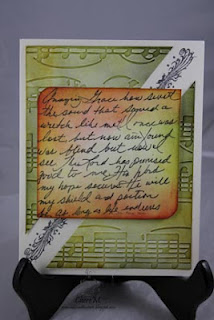 Amazing Grace how sweet
the sound that saved a
wretch like me! I once was
lost but now am found
was blind but now I
see. The Lord has promised
good to me, His Word
my hope secures. He will
my shield and portion
be as long as life endures